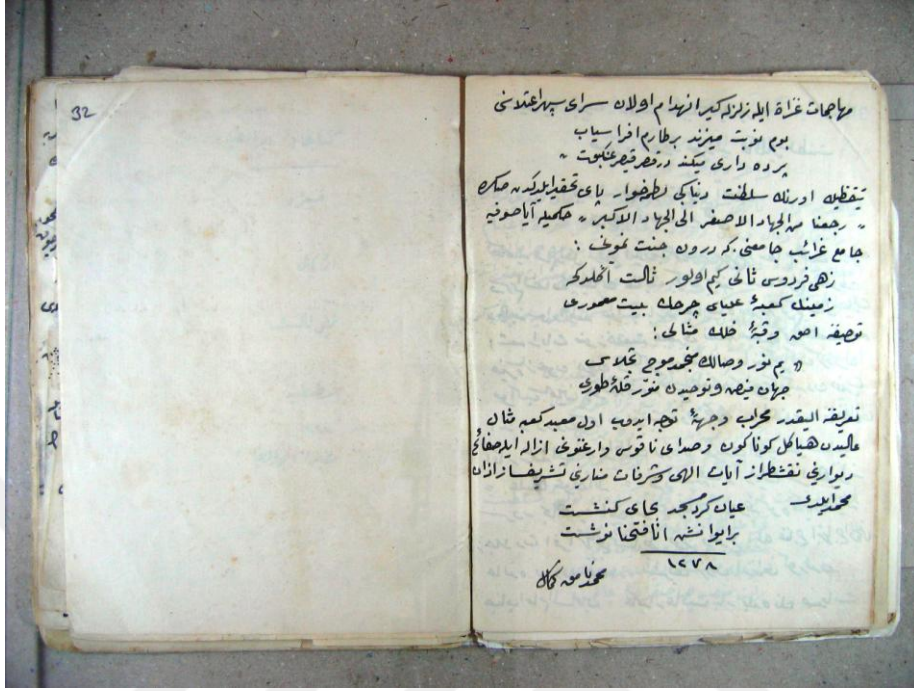 32
مهاجمات غزاة ايله زلزله كير انهدام اولان سراى سپهر اعتلاسنى
بوم نوبت ميزند بر طارم افراسياب
پرده دارى ميكند در قصر قيصر عنكبوت «
تيقظيله اورنك سلطنت دنيايى پاى تحقير ايلدكدن صكره
« رجعنا من الجهاد الاصغر الى الجهاد الاكبر » حكميله آياصوفيه
جامع غرائب جامعنى كه درون جنت نمونى :
زهى فردوس ثانى كيم اولور ثالث آكلدكه
زمينك كعبۀ علياى چرخك بيت معمورى
توصيفه احق وقبۀ فلك مثالى :
« يم نور وصالك منجمد موج تجلاسى
جهان فيض وتوحيدك منور قلۀ طورى
تعريفه اليقدر محراب وجهۀ توجه ايدوب اول معبد كعبه مثال
عاليدن هياكل كوناكون وصداى ناقوس وارغنونى ازاله ايله صفائح
ديوارينى نقشطراز آيات الهى وشرفات منارينى تشريفساز اذان
محمدى ايلدى
عيان كرد مسجد بجاى كنشت
بر ايوانش انا فتحنا نوشت
١٢٧٨
محمد نامق كمال